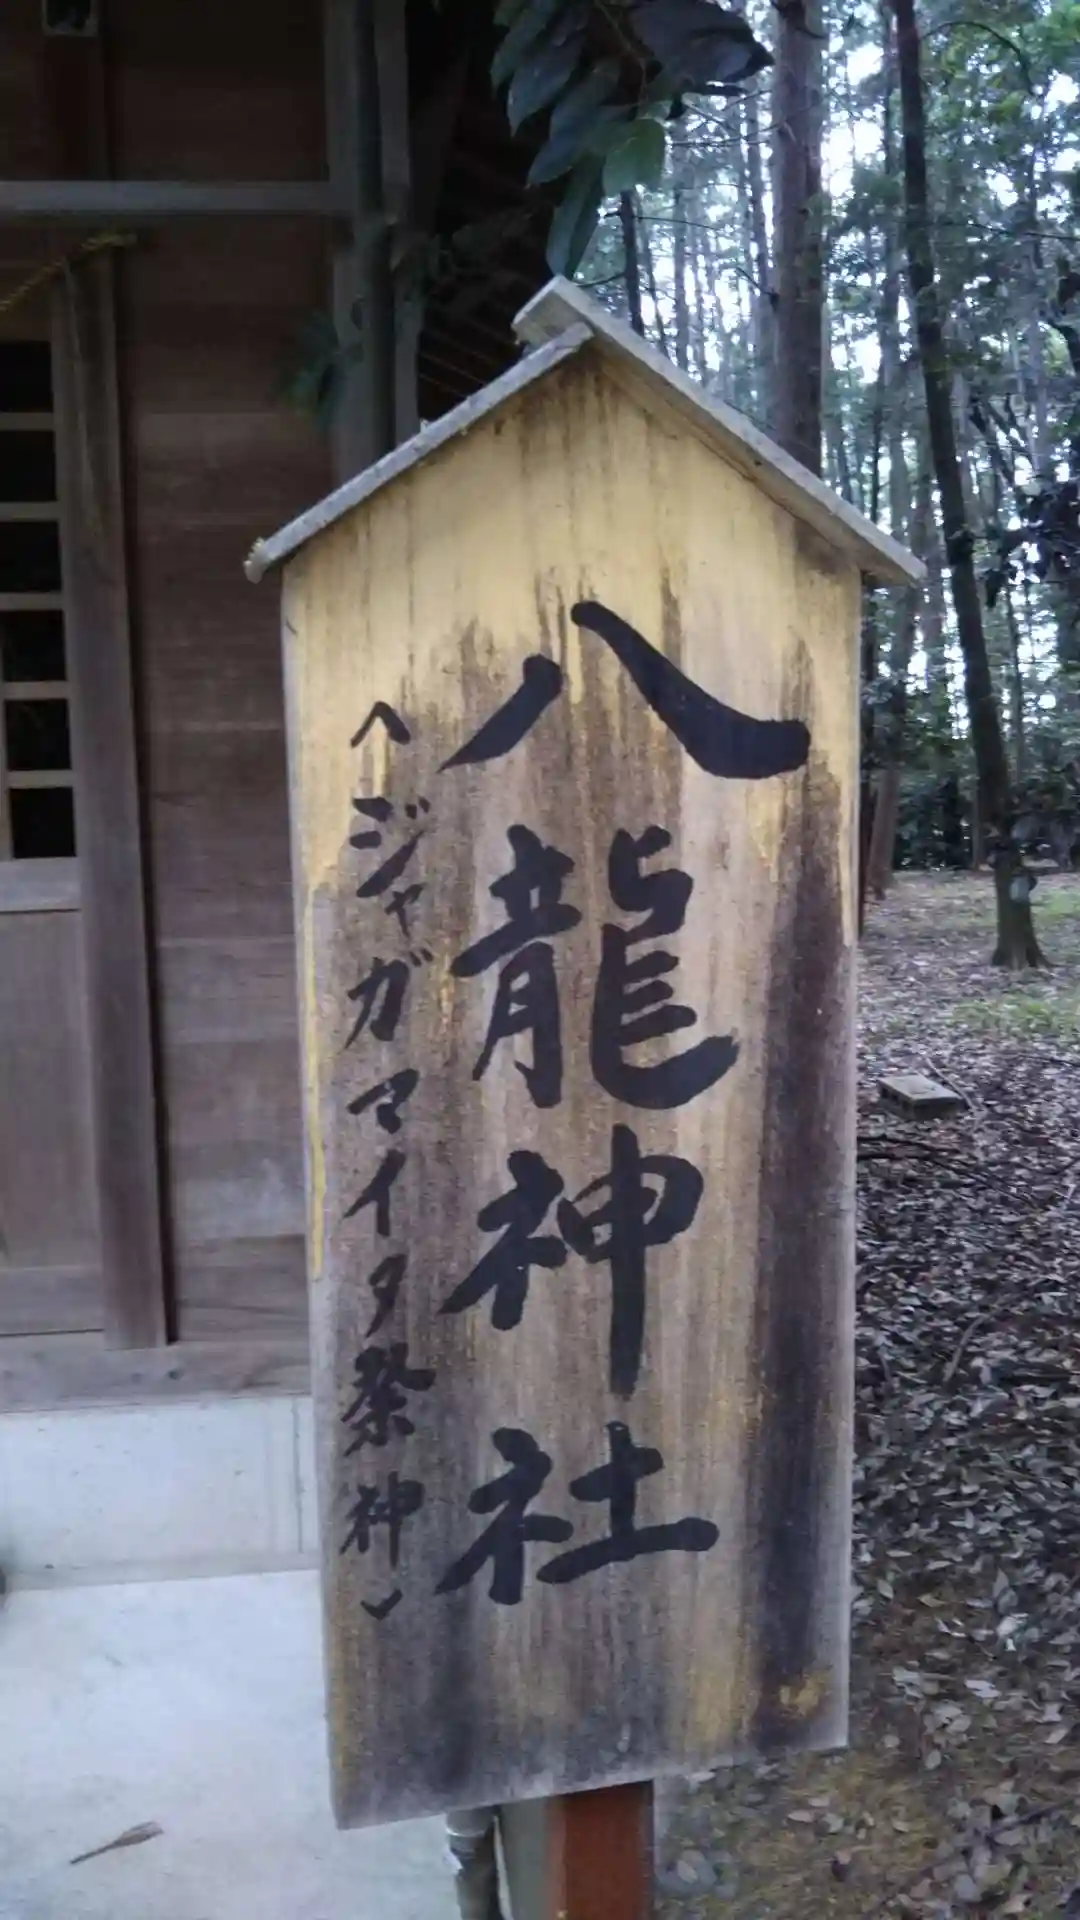 八龍神社
(ジャガマイタ祭神)